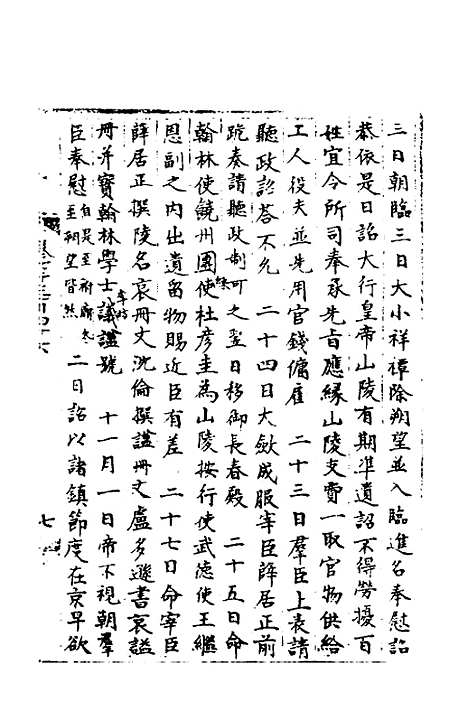 三日朝臨三日大小祥禫除朔望並入臨進名奉慰詔
恭依是日詔大行皇帝山陵有期準遺詔不得勞擾百
姓宜令所司奉承先旨應緣山陵支費一取官物供給
工人役夫並先用官錢傭雇 二十三日羣臣上表請
聽政詔荅不允 二十四日大斂成服宰臣薛居正前
跪奏請聽政制可之翌日移御長春殿 二十五日命
翰林使饒州團練使杜彦圭為山陵按行使武德使王繼
恩副之内出遺留物賜近臣有差 二十七日命宰臣
薛居正撰陵名哀冊文沈倫撰諡冊文盧多遜書哀諡
冊并寶翰林學士李昉議諡號 十一月一日帝不視朝羣
臣奉慰自是至祔廟冬至朔望皆然 二日詔以諸鎮節度在京早欲
七